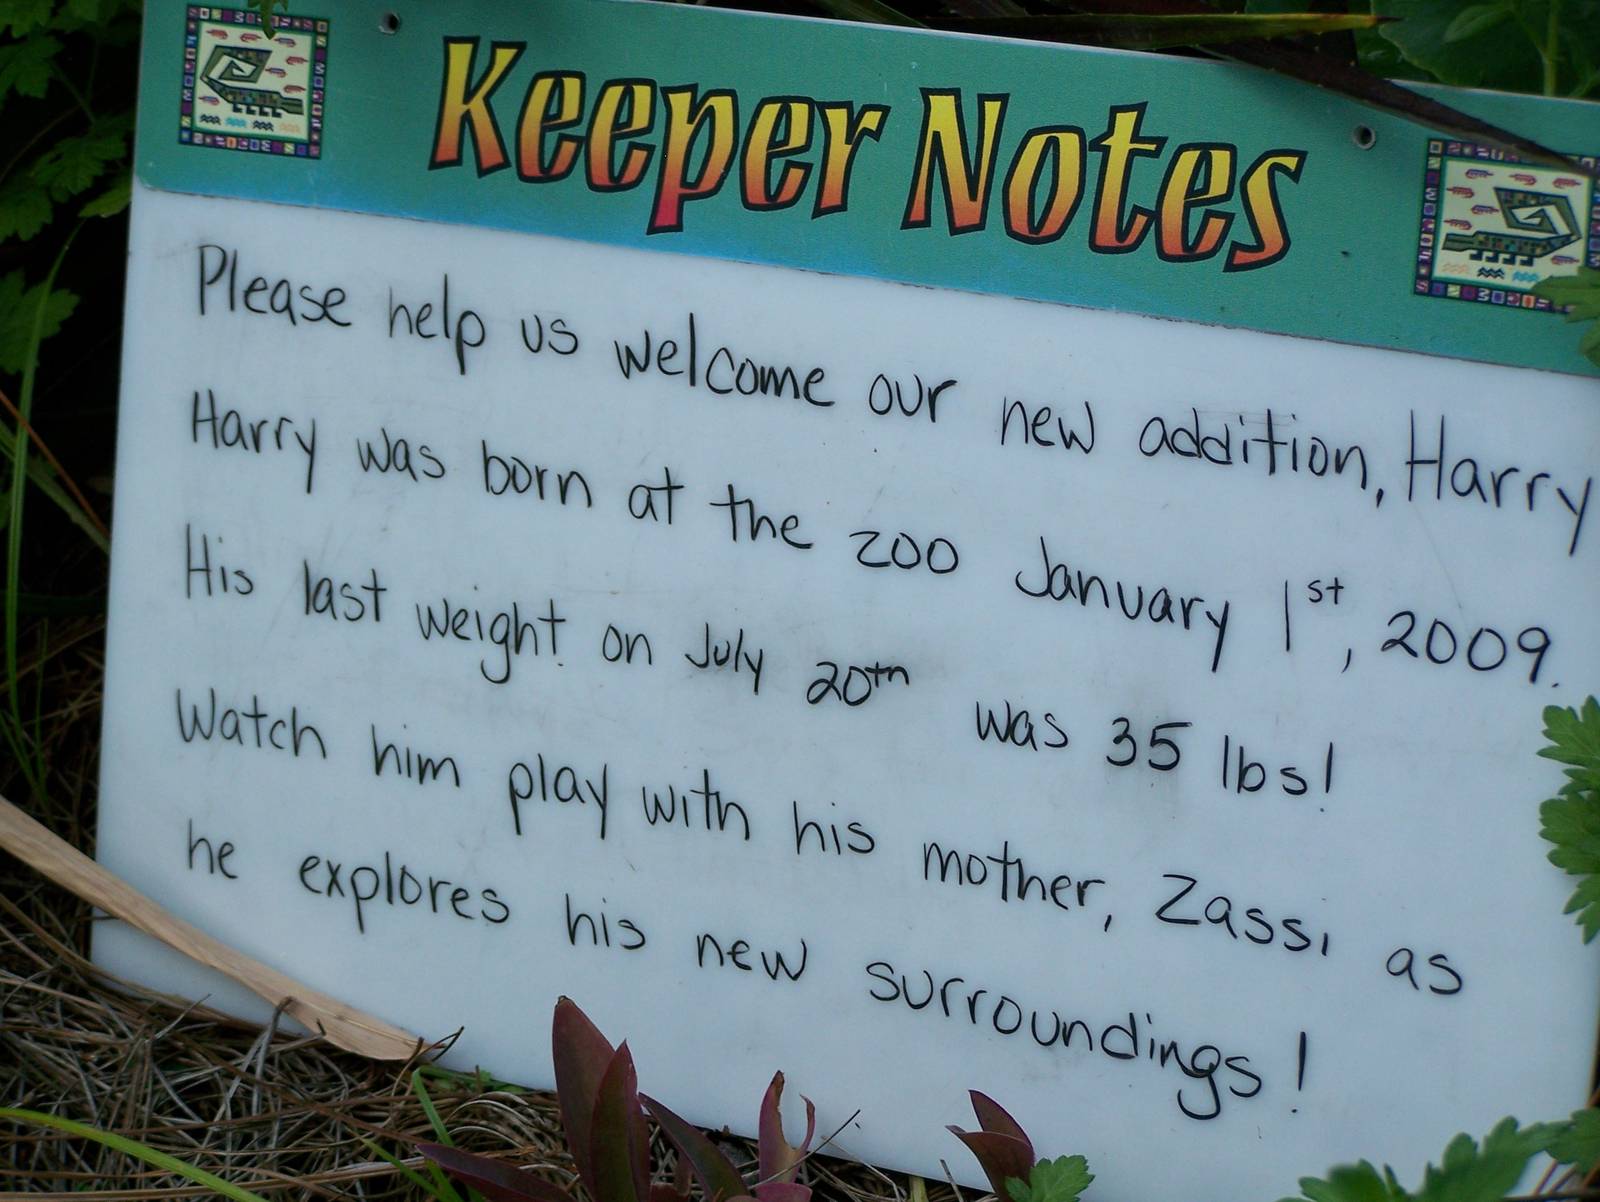 Keeper Notes
Please help us welcome our new addition, Harry
Harry was born at the zoo January 1st, 2009.
His last weight on July 20th was 35 lbs!
Watch him play with his mother, Zassi as
he explores his new surroundings!